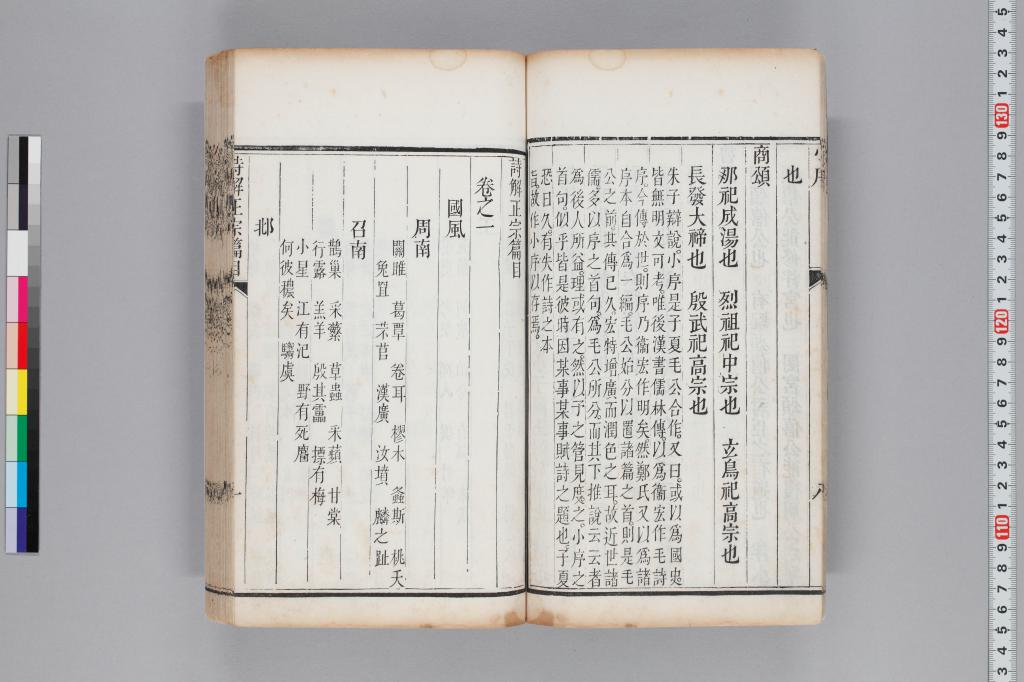 也
商頌
那祀成湯也　烈祖祀中宗也　玄鳥祀高宗也
長發大禘也　殷武祀高宗也
朱子辯說小序是子夏毛公合作又曰或以爲國史
皆無明文可考唯後漢書儒林傳以爲衞宏作毛詩
序今傳於世則序乃衞宏作明矣然鄭氏又以爲諸
序本自合爲一編毛公始分以置諸篇之首則是毛
公之前其傳已久宏特增廣而潤色之耳故近世諸
儒多以序之首句爲毛公所分而其下推說云云者
爲後人所益理或有之然以予之管見度之小序之
首句似乎皆是彼時因某事某事賦詩之題也子夏
恐日久有失作詩之本
旨故作小序以存焉
詩解正宗篇目
卷之一
國風
周南
關雎　葛覃　卷耳　樛木　螽斯　桃夭
兔罝　芣苢　漢廣　汝墳　麟之趾
召南
鵲巢　采蘩　草蟲　采蘋　甘棠
行露　羔羊　殷其靁　摽有梅
小星　江有汜　野有死麕
何彼穠矣　騶虞
邶
詩解正宗篇目　一